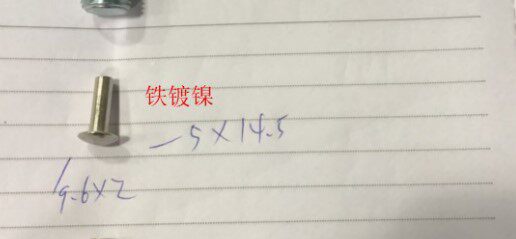 铁镀镍
5×14.5
9.6×2